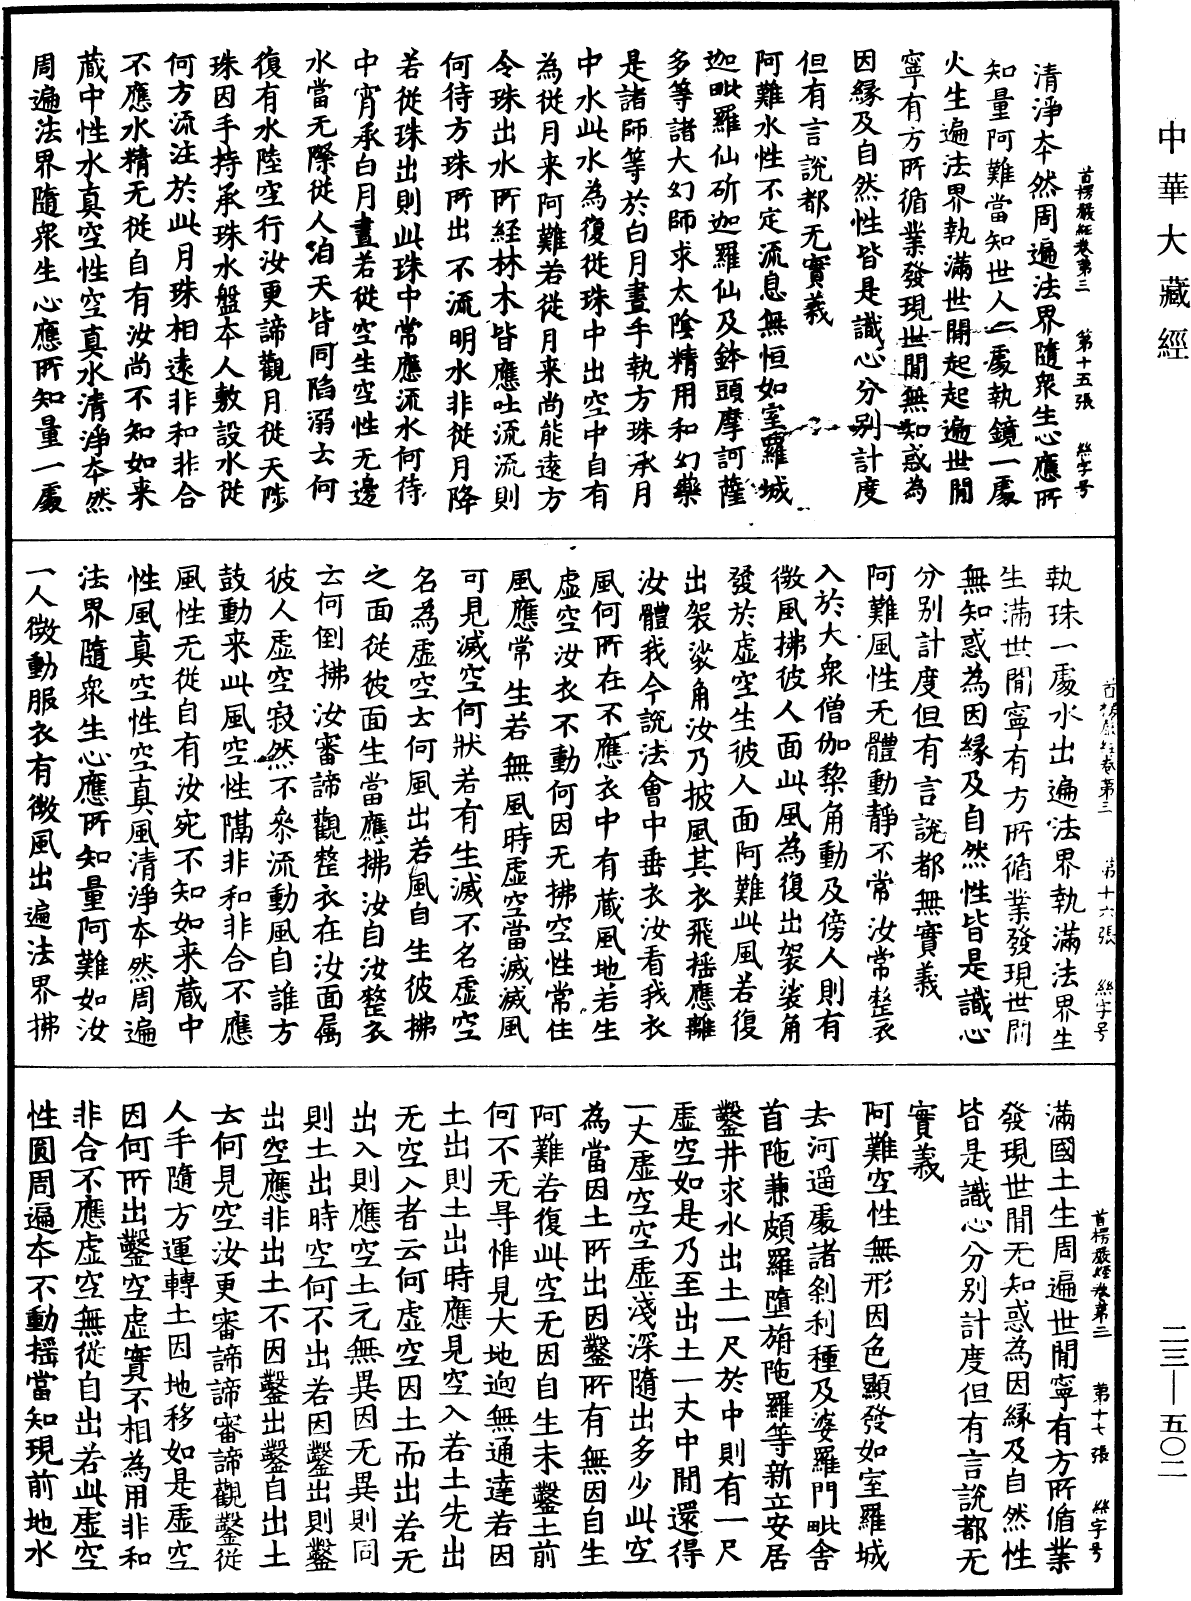 中華大藏經
首楞嚴經卷第三　第十五張　絲字号
清淨夲然周遍法界隨衆生心應所
知量阿難當知世人一處執鏡一處
火生遍法界執滿世間起起遍世間
寧有方所循業發現世間無知惑為
因緣及自然性皆是識心分別計度
但有言說都无實義
阿難水性不定流息無恒如室羅城
迦毗羅仙斫迦羅仙及鉢頭摩訶薩
多等諸大幻師求太陰精用和幻藥
是諸師等於白月晝手執方珠承月
中水此水為復從珠中出空中自有
為從月来阿難若從月来尚能遠方
令珠出水所經林木皆應吐流流則
何待方珠所出不流明水非從月降
若從珠出則此珠中常應流水何待
中宵承白月晝若從空生空性无邊
水當无際從人洎天皆同陷溺云何
復有水陸空行汝更諦觀月從天陟
珠因手持承珠水盤夲人敷設水從
何方流注於此月珠相遠非和非合
不應水精无從自有汝尚不知如来
藏中性水真空性空真水清淨夲然
周遍法界隨衆生心應所知量一處
首楞嚴經卷第三　第十六張　絲字号
執珠一處水出遍法界執滿法界生
生滿世間寧有方所循業發現世間
無知惑為因緣及自然性皆是識心
分別計度但有言說都無實義
阿難風性无體動靜不常汝常整衣
入於大衆僧伽梨角動及傍人則有
微風拂彼人面此風為復出袈裟角
發於虛空生彼人面阿難此風若復
出袈裟角汝乃披風其衣飛搖應離
汝體我今說法會中垂衣汝看我衣
風何所在不應衣中有藏風地若生
虛空汝衣不動何因无拂空性常住
風應常生若無風時虛空當滅滅風
可見滅空何狀若有生滅不名虛空
名為虛空云何風出若風自生彼拂
之面從彼面生當應拂汝自汝整衣
云何倒拂汝審諦觀整衣在汝面屬
彼人虛空寂然不叅流動風自誰方
鼓動来此風空性隔非和非合不應
風性无從自有汝宛不知如来藏中
性風真空性空真風清淨夲然周遍
法界隨衆生心應所知量阿難如汝
一人微動服衣有微風出遍法界拂
首楞嚴經卷第三　第十七張　絲字号
滿國土生周遍世間寧有方所循業
發現世間无知惑為因緣及自然性
皆是識心分別計度但有言說都无
實義
阿難空性無形因色顯發如室羅城
去河遥處諸剎利種及婆羅門毗舍
首陁兼頗羅墮旃陁羅等新立安居
鑿井求水出土一尺於中則有一尺
虛空如是乃至出土一丈中間還得
一丈虛空空虛淺深隨出多少此空
為當因土所出因鑿所有無因自生
阿難若復此空无因自生未鑿土前
何不无㝵惟見大地逈無通達若因
土出則土出時應見空入若土先出
无空入者云何虛空因土而出若无
出入則應空土元無異因无異則同
則土出時空何不出若因鑿出則鑿
出空應非出土不因鑿出鑿自出土
云何見空汝更審諦諦審諦觀鑿從
人手隨方運轉土因地移如是虛空
因何所出鑿空虛實不相為用非和
非合不應虛空無從自出若此虛空
性圓周遍夲不動搖當知現前地水
二三—五〇二